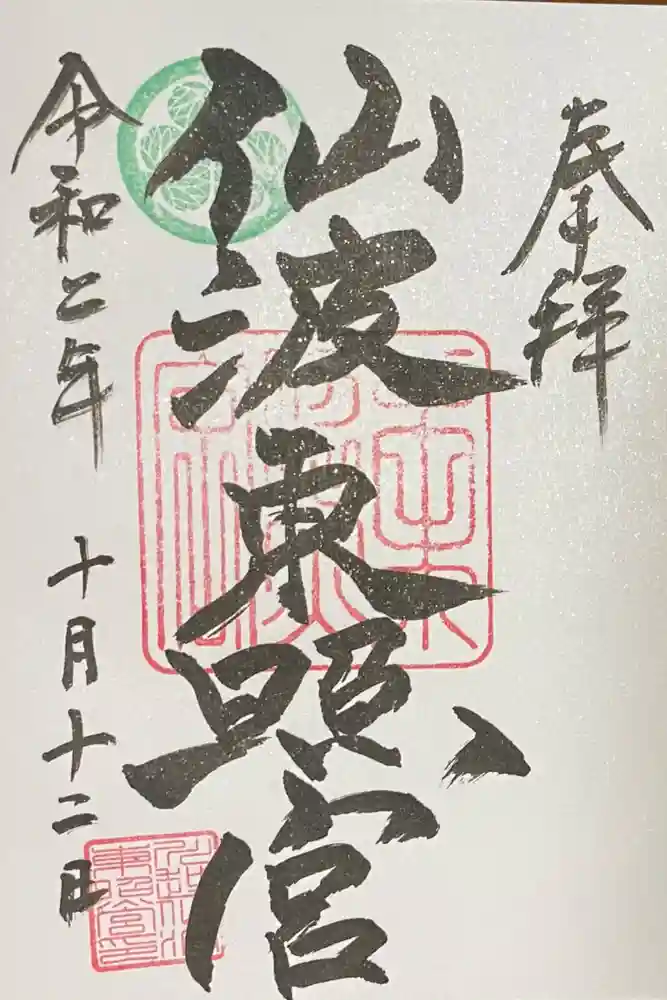 奉拝
仙波東照宮
令和二年 十月十二日